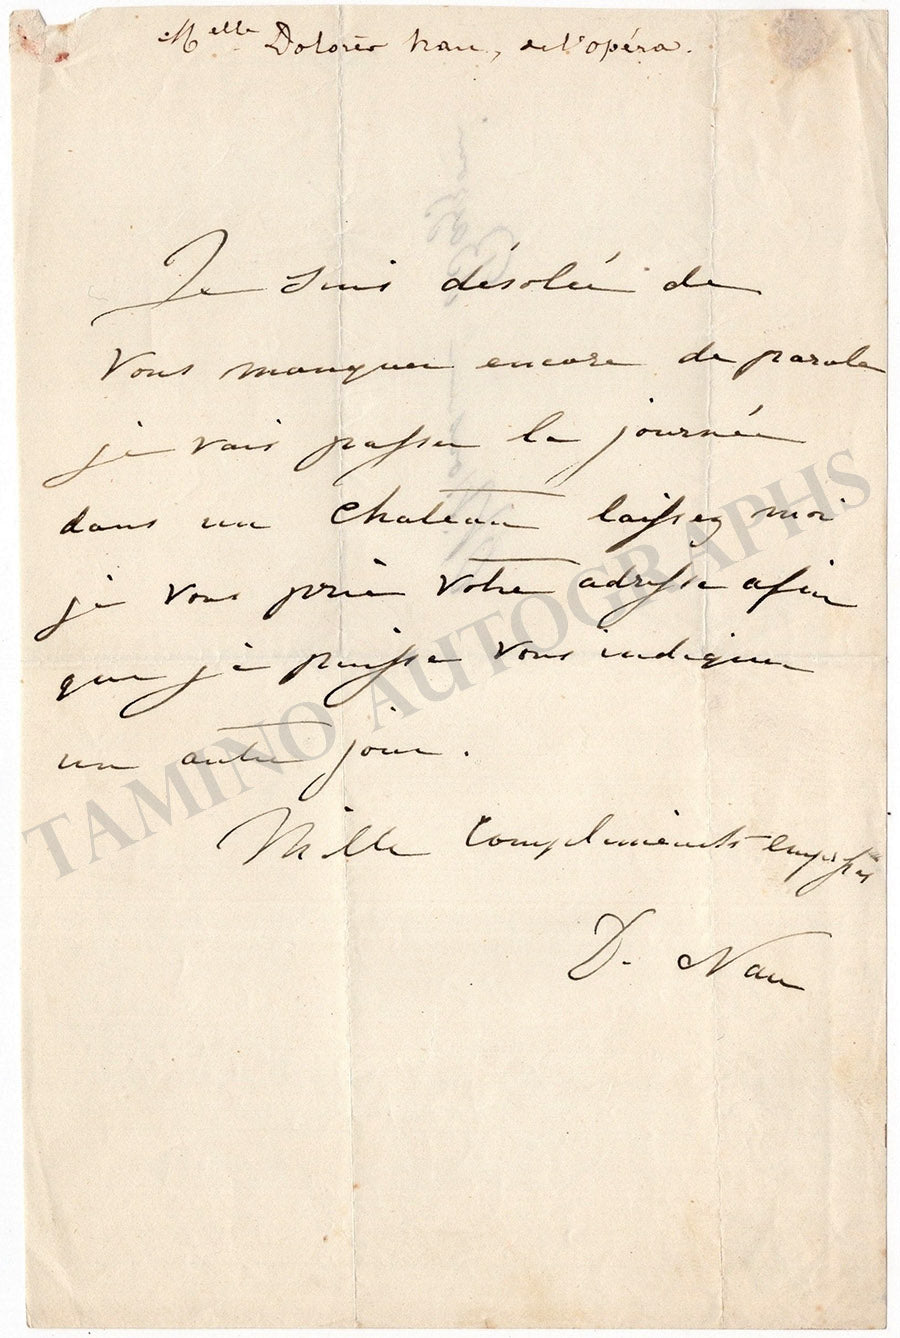 Melle Dolorès Nau, de l'opéra.
Je suis désolée de
vous manquer encore de parole
je vais passer la journée
dans un chateau laissez moi
je vous prie votre adresse afin
que je puisse vous indiquer
un autre jour.
Mille compliments
D. Nau
TAMINO AUTOGRAPHS